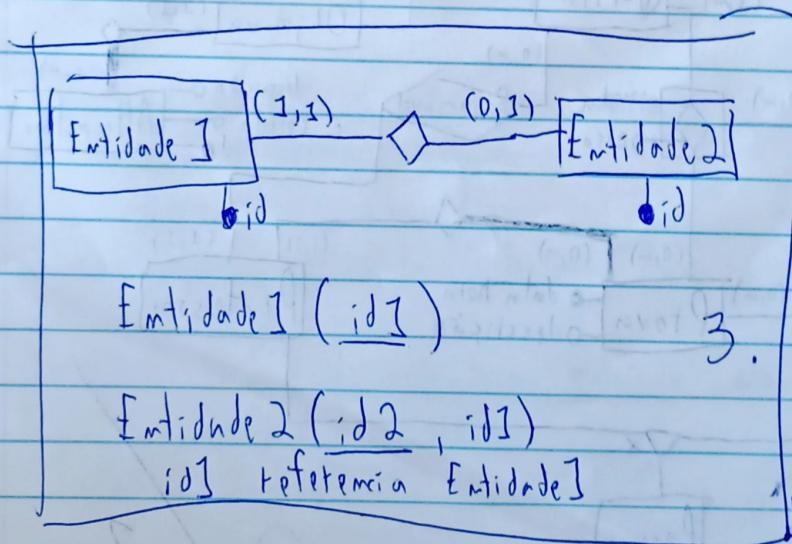 (1,1) (0,1)
Entidade 1 Entidade 2
id id
Entidade 1 (id1)
3.
Entidade 2 (id2, id1)
id1 referencia Entidade 1